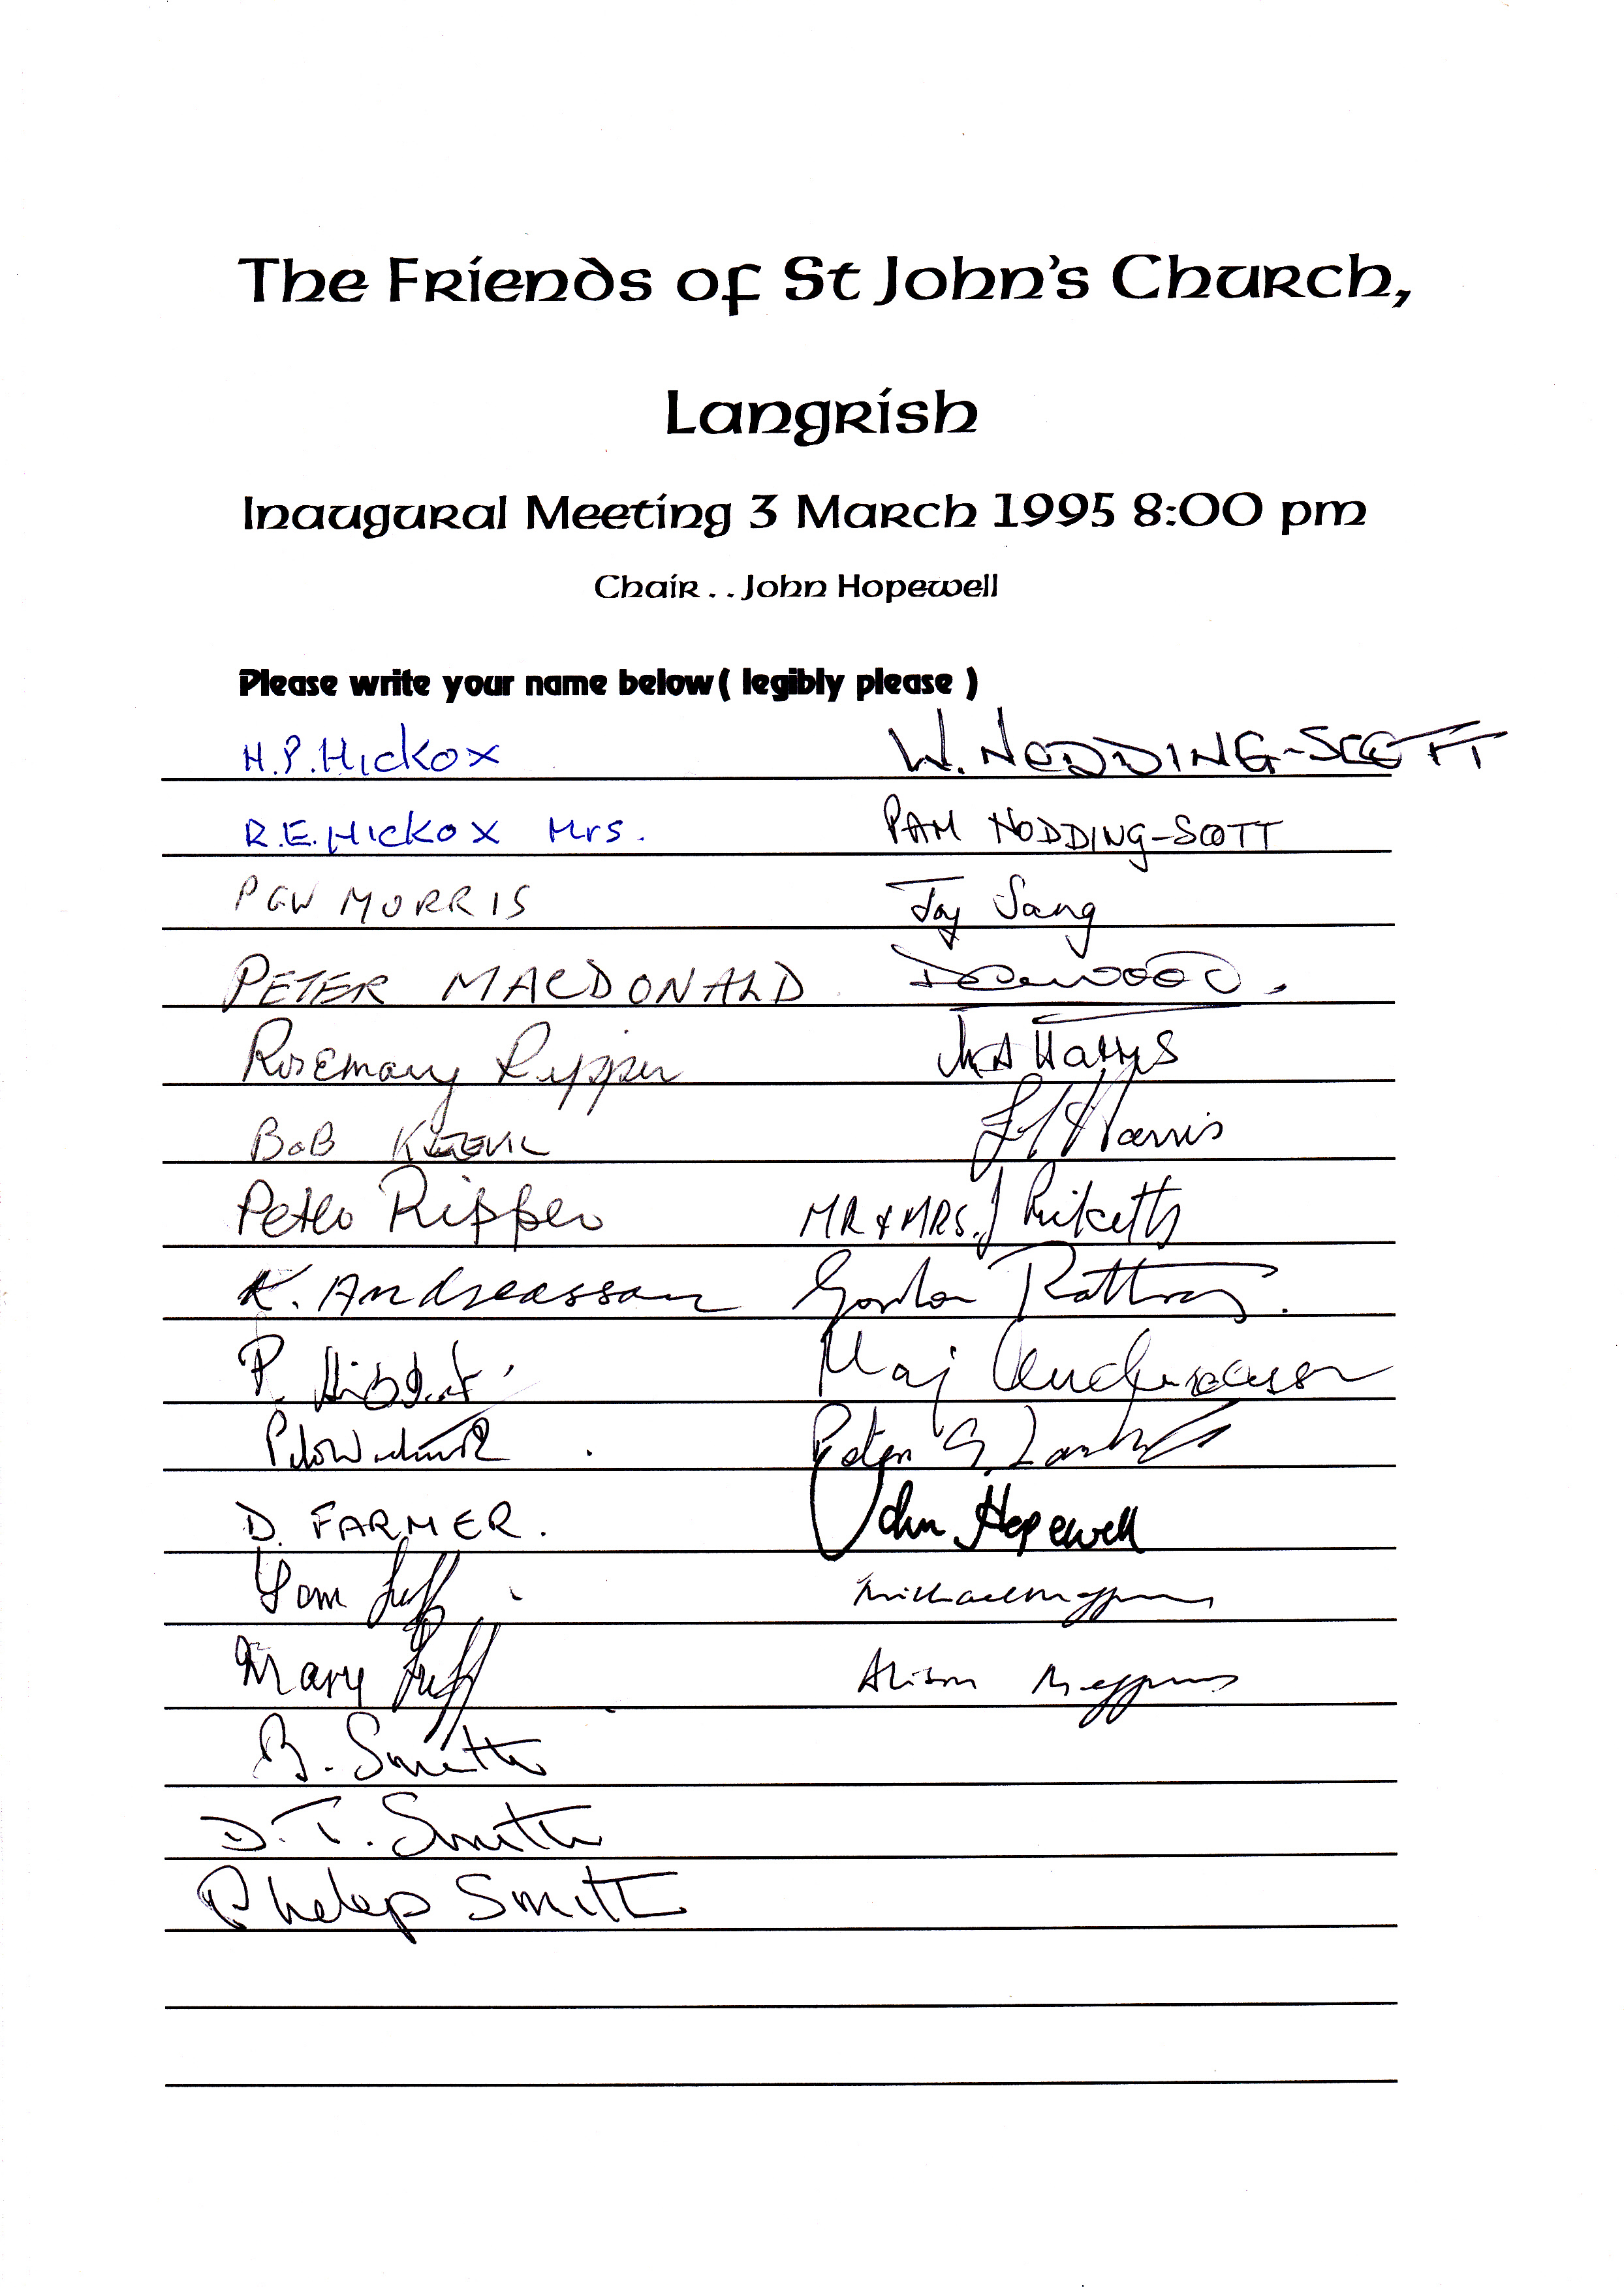 The Friends of St John's Church,
Langrish
Inaugural Meeting 3 March 1995 8:00 pm
Chair . . John Hopewell
Please write your name below ( legibly please )
H.P. Hickox W. NODDING-SCOTT
R.E. Hickox Mrs. PAM NODDING-SCOTT
PGW MORRIS Joy Sang
PETER MACDONALD
Rosemary Ripper Harris
BOB KEEVIL Harris
Peter Ripper MR & MRS. J Ricketts
K. Andreasson Gordon Rattray.
P. Hibbert Maj Andreasson
Peter G.
D. FARMER. John Hopewell
Tom Luff
Mary Luff Alison
B. Smith
D. T. Smith
Philip Smith